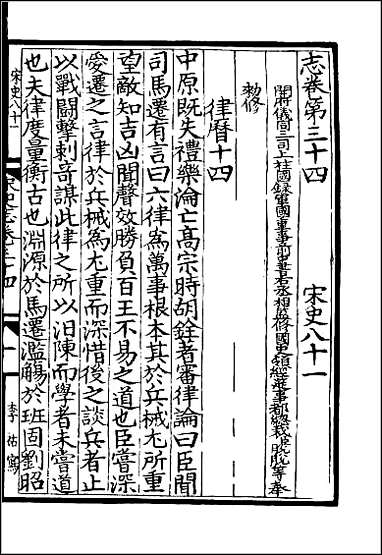 志卷第三十四　宋史八十一
開府儀同三司上柱國錄軍國重事前中書右丞相監修國史領經筵事都總裁脫脫等奉
勑修
律曆十四
中原既失禮樂淪亡高宗時胡銓著審律論曰臣聞
司馬遷有言曰六律爲萬事根本其於兵械尤所重
望敵知吉凶聞聲效勝負百王不易之道也臣嘗深
愛遷之言律於兵械爲尤重而深惜後之談兵者止
以戰鬬擊刺奇謀此律之所以汩陳而學者未嘗道
也夫律度量衡古也淵源於馬遷濫觴於班固劉昭
宋史八十一
宋史志卷三十四
一
李祐寫